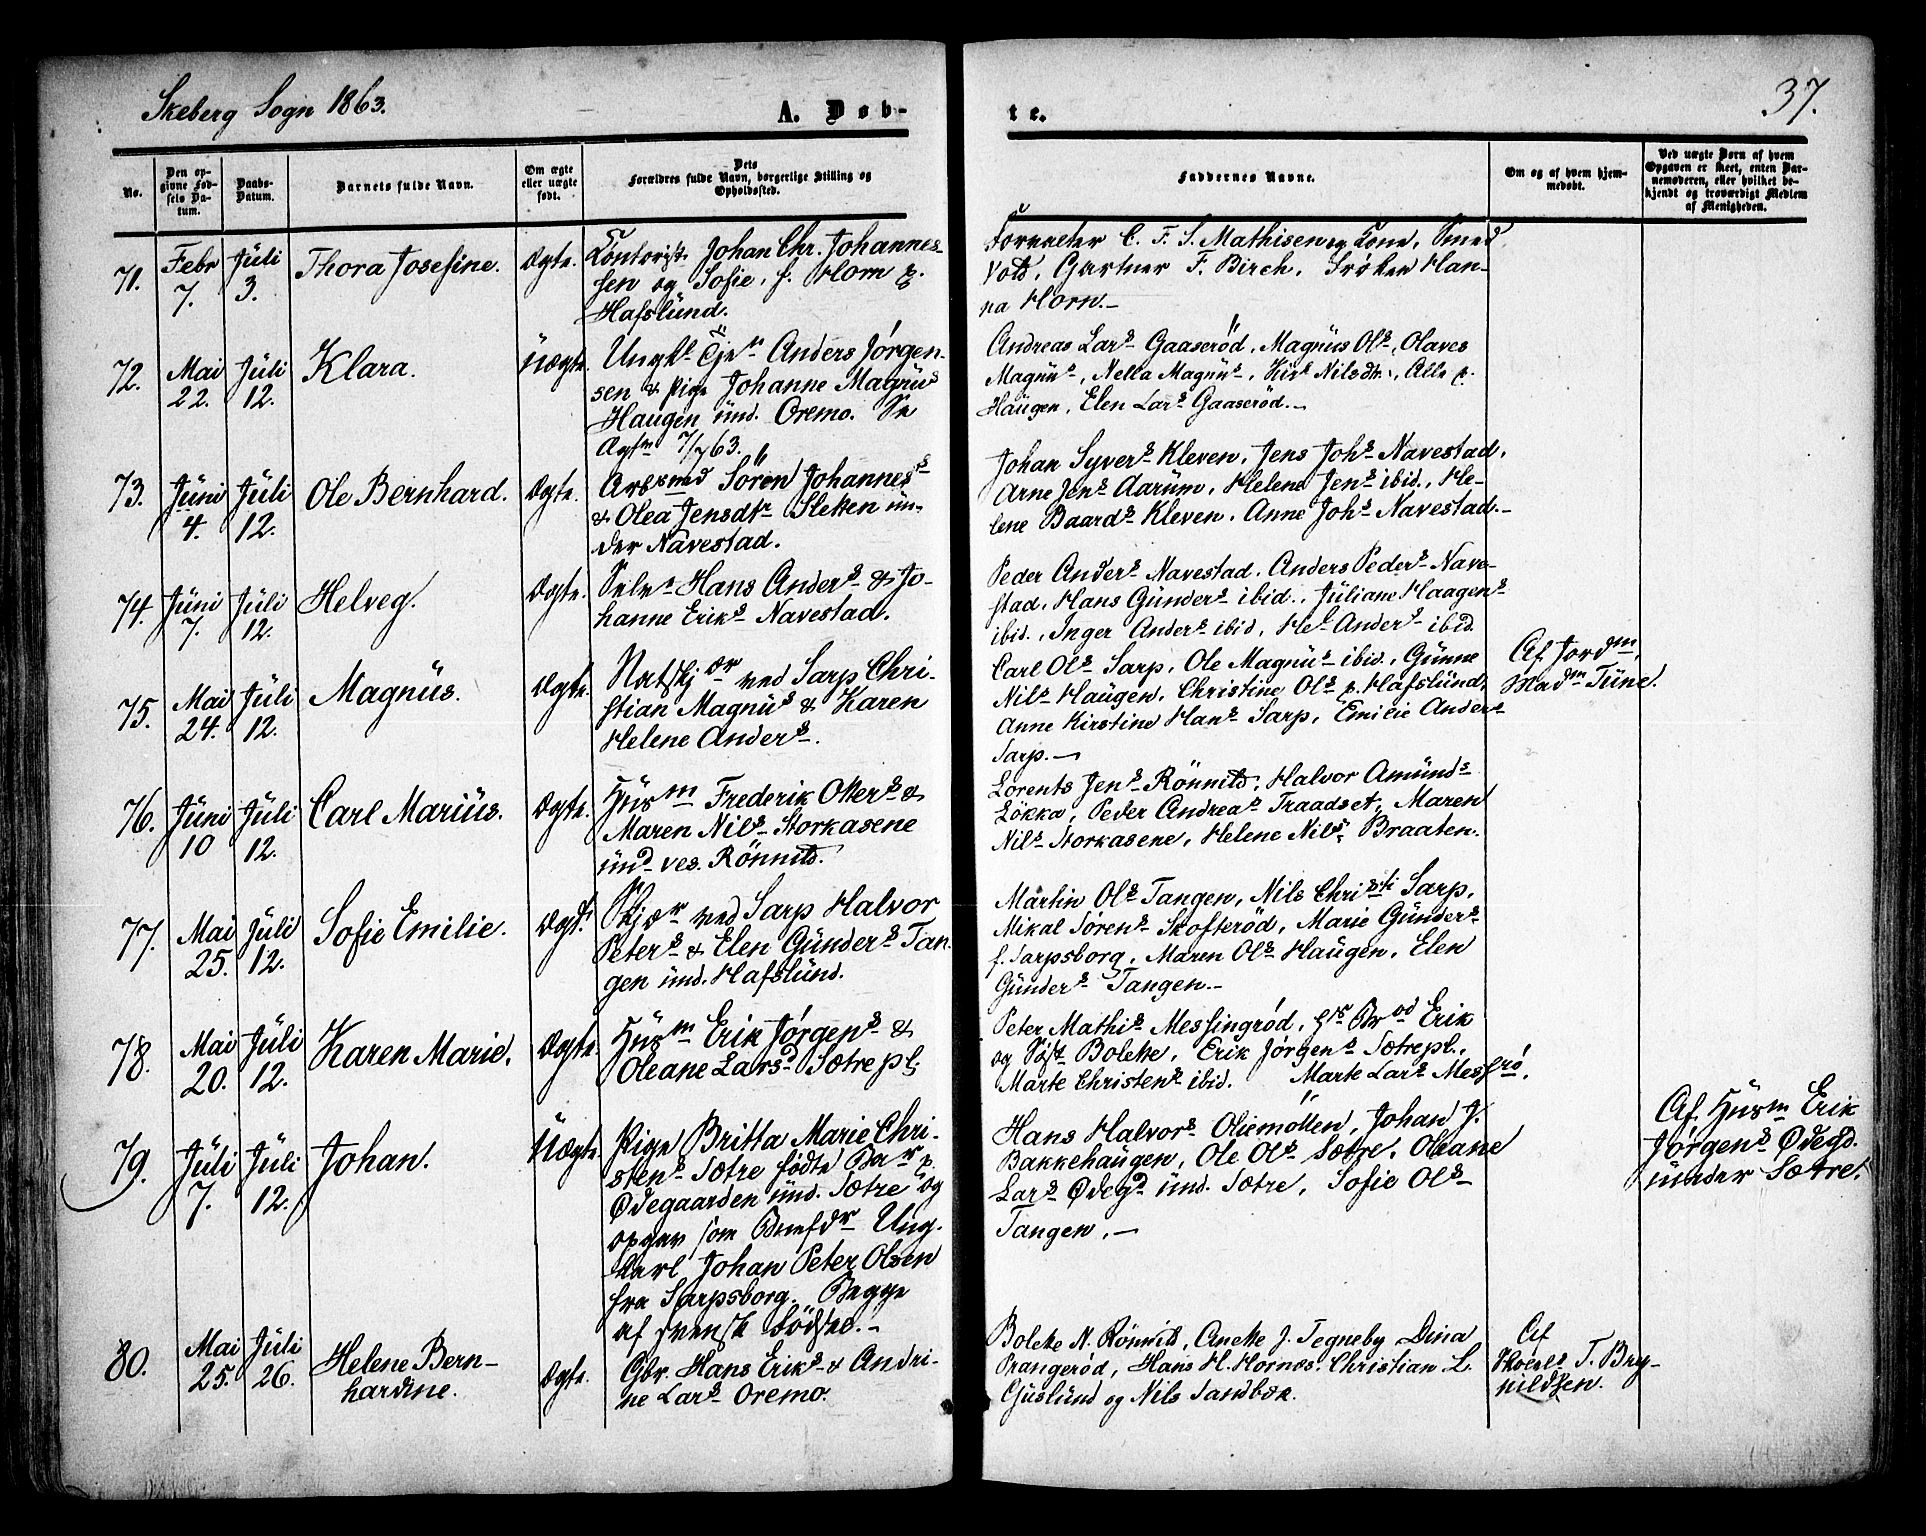 Skeberg Sogn 1863.
A. Døb-
te.
37.
No.
Den op-
givne Fød-
sels Da-
tum.
Daabs-
Datum.
Barnets fulde Navn.
Om ægte
eller uægte
født.
Dets
Forældres fulde Navn, borgerlige Stilling og
Opholdsted.
Faddernes Navne.
Om og af hvem hjem-
medøbt.
Ved uægte Børn af hvem
Opgaven er skeet, enten Bar-
nemoderen, eller hvilket be-
kjendt og troværdigt Medlem
af Menigheden.
71.
Febr
7.
Juli
3.
Thora Josefine.
Ægte.
Contorist Johan Chr. Johannes-
sen og Sofie, f. Horn p.
Hafslund.
Forvalter C. F. S. Mathisen og Kone, Smed
Vold, Gartner F. Birch, Frøken Han-
na Horn.-
72.
Mai
22.
Juli
12.
Klara.
Uægte.
Ungk Eje Anders Jørgen-
sen & Pige Johanne Magnus
Haugen und. Oremo. Se
Ægtm 7/7 63.
Andreas Lars Gaaserød, Magnus Ols, Olaves
Magnus, Nella Magnus, Kirs Nilsdtr, Alle p.
Haugen, Elen Lars Gaaserød.-
73.
Juni
4.
Juli
12.
Ole Bernhard.
Ægte.
Arbsmd Sören Johannes
& Olea Jensdtr Sletten un-
der Navestad.
Johan Syvers Kleven, Jens Johs Navestad,
Arne Jens Aarum, Helene Jens ibid., He-
lene Baards Kleven, Anne Johs Navestad.-
74.
Juni
7.
Juli
12.
Helveg.
Ægte.
Selv Hans Anders & Jo-
hanne Eriks Navestad.
Peder Anders Navestad, Anders Peders Nave-
stad, Hans Gunders ibid., Juliane Haagens
ibid., Inger Anders ibid, Hel Anders ibid.
75.
Mai
24.
Juli
12.
Magnus.
Ægte.
Natskjær ved Sarp Chri-
stian Magnus & Karen
Helene Anders.
Carl Ols Sarp, Ole Magnus ibid., Gunne
Nils Haugen, Christine Ols p. Hafslund,
Anne Kirstine Hans Sarp, Emilie Anders
Sarp.-
Af Jordm
Madm Tune.
76.
Juni
10
Juli
12.
Carl Marius.
Ægte.
Husm Frederik Otters &
Maren Nils Storkasene
und ves. Rönnild.
Lorents Jens Rönnild, Halvor Amunds
Løkka, Peder Andreas Traadset, Maren
Nils Storkasene, Helene Nils Braaten.
77.
Mai
25.
Juli
12.
Sofie Emilie.
Ægt.
Skjær ved Sarp Halvor
Peters & Elen Gunders Tan-
gen und. Hafslund.
Martin Ols Tangen, Nils Christi Sarp,
Mikal Sørens Skofterød, Marie Gunders
f. Sarpsborg, Maren Ols Haugen, Elen
Gunders Tangen.-
78.
Mai
20.
Juli
12.
Karen Marie.
Ægte.
Husm Erik Jørgens &
Oleane Larsd Sætrepl.
Peter Mathis Messingrød, Erik
og Bolette, Erik Jørgens Sætrepl.,
Marte Christens ibid. Marte Lars Messrö.
79.
Juli
7.
Juli
12.
Johan.
Uægte.
Pige Britta Marie Chri-
stens Sætre fødte Bar p.
Ødegaarden und. Sætre og
opgav som Barnefdr Ung-
karl Johan Peter Olsen
fra Sarpsborg. Begge
af svensk Födsel.-
Hans Halvors Oliemöllen, Johan J.
Bakkehaugen, Ole Ols Sætre, Oleane
Lars Ødegd und. Sætre, Sofie Ols
Tangen.-
Af Husm Erik
Jørgens Ødegd.
under Sætre.
80.
Mai
25.
Juli
26.
Helene Bern-
hardine.
Ægte.
Gbr. Hans Eriks & Andri-
ne Lars Oremo.
Bolette N. Rönnild, Anette J. Tegneby Dina
Prangerød, Hans H. Hornæs, Christian L.
Guslund og Nils Sandbæk.
Af
T. Bry-
nildsen.